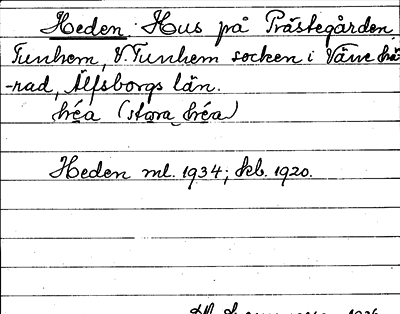 Heden. Hus på Prästegården,
Tunhem, V. Tunhem socken i Väne hä-
-rad, Älfsborgs län.
héa (stora héa)
Heden ml. 1934; kb. 1920.